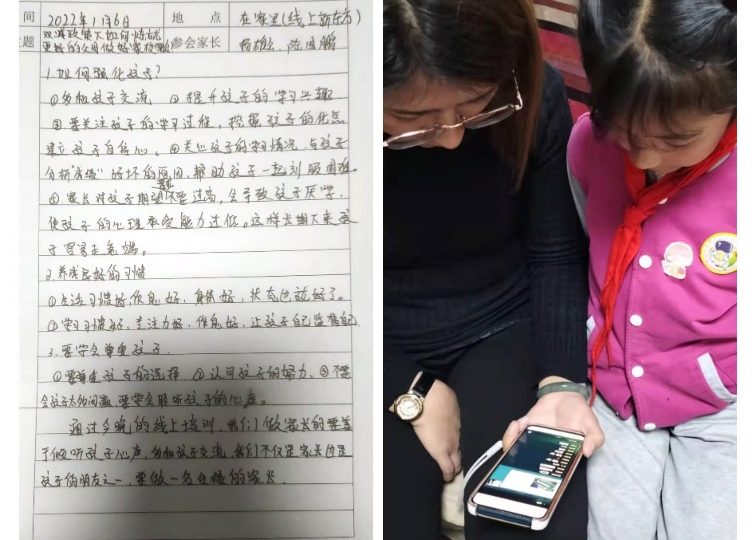 间 2022年1月6日 地 点 在家里(线上新东方)
双减政策下如何培育
题 更好的父母做好家校 参会家长
1.如何强化孩子?
①多和孩子交流 ②提升孩子的学习兴趣
③要关注孩子的学习过程,挖掘孩子的优点
建立孩子自信心,④关心孩子的学习情况,与孩子
分析"成绩"好坏的原因,帮助孩子一起克服困难。
⑤家长对孩子期望不要过高,会导致孩子厌学,
使孩子的心理承受能力过低。这样长期下来孩
子容易走急端。
2.养成良好的习惯
①生活习惯好,作息好,身体好,状态也就好了。
②学习习惯好,专注力好,作息好,让孩子自己监督自己
3.要学会尊重孩子.
①要尊重孩子的选择 ②认可孩子的努力,③不要
会孩子太多问题,要学会聆听孩子的心声。
通过今晚的线上培训,我们做家长的要善
于倾听孩子心声,多和孩子交流,我们不仅是家长也是
孩子的朋友之一,要做一名合格的家长.